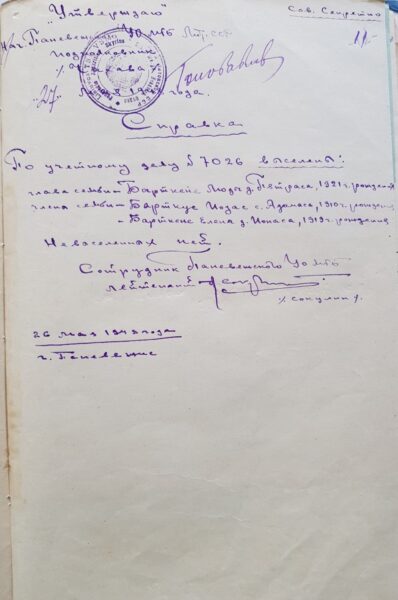 Сов. Секретно
"Утверждаю"
Нач. Паневежск УО МГБ Лит. ССР
подполковник
11
"27"
года.
Справка
По учетному делу № 7026 выселены:
глава семьи – Барткене д. Петраса, 1921 г. рождения
члена семьи – Барткус Иозас с. Адамаса, 1910 г. рождения
– Барткене Елена д. Ионаса, 1919 г. рождения
Невыселенных нет.
Сотрудник Паневежского УО МГБ
лейтенант
/ Сокулин /.
26 мая 1948 года
г. Паневежис